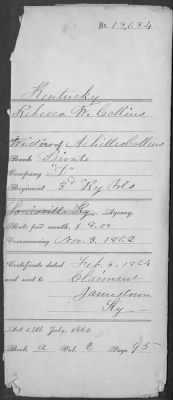 No. 13,634
Kentucky
Rebecca W. Collins
Widow of Achilles Collins
Rank Private
Company "I"
Regiment 3d Ky Vols
Louisville Ky Agency.
Rate per month, $ 8.00
Commencing Nov. 3. 1862
Certificate dated Feb. 3. 1864
and sent to Claimant
Jamestown
Ky
Act 14th July, 1862.
Book A Vol. 2 Page 95